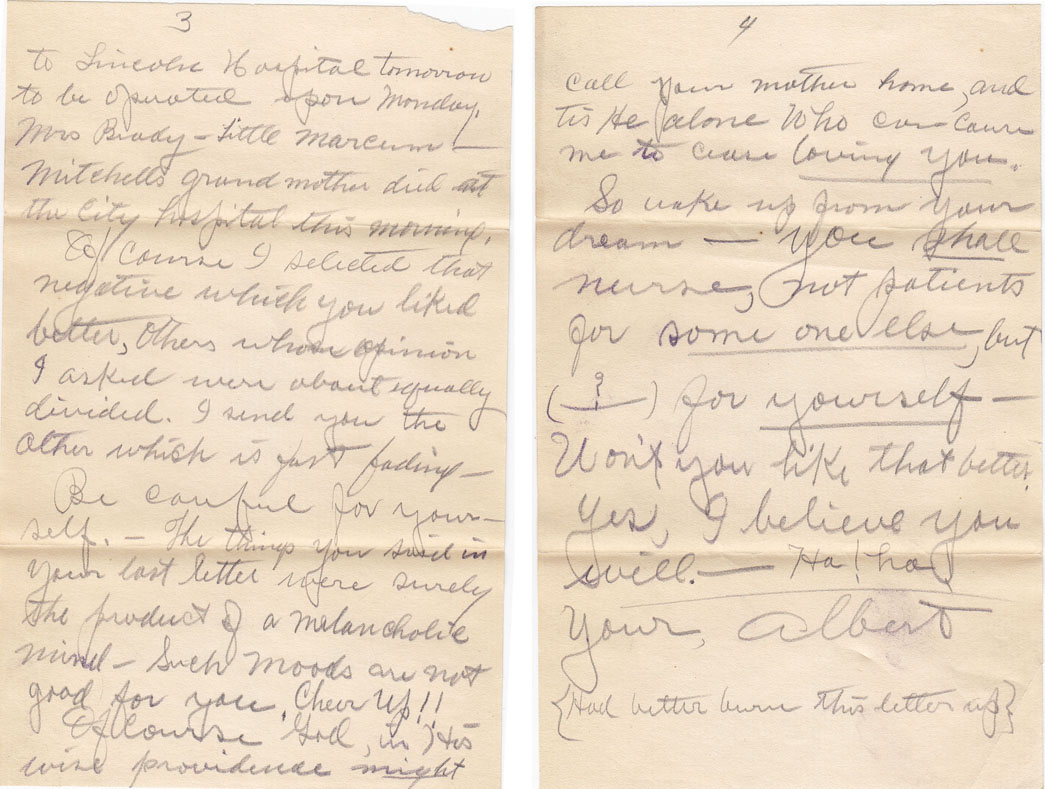 3
to Lincoln Hospital tomorrow
to be operated upon Monday.
Mrs Brady – Little Marcum –
Mitchells grandmother died at
the City hospital this morning.
Of Course I selected that
negative which you liked
better, Others whose opinion
I asked were about equally
divided. I send you the
other which is fast fading –
Be careful for your-
self. – The things you said in
your last letter were surely
the product of a melancholic
mind – Such moods are not
good for you. Cheer Up!!
Of Course God, in His
wise providence might
4
call your mother home, and
tis He alone Who can cause
me to cease loving you.
So wake up from your
dream — you shall
nurse, not patients
for some one else, but
( ? ) for yourself –
Won't you like that better.
Yes, I believe you
will. — Ha! ha
Your, Albert
{Had better burn this letter up}